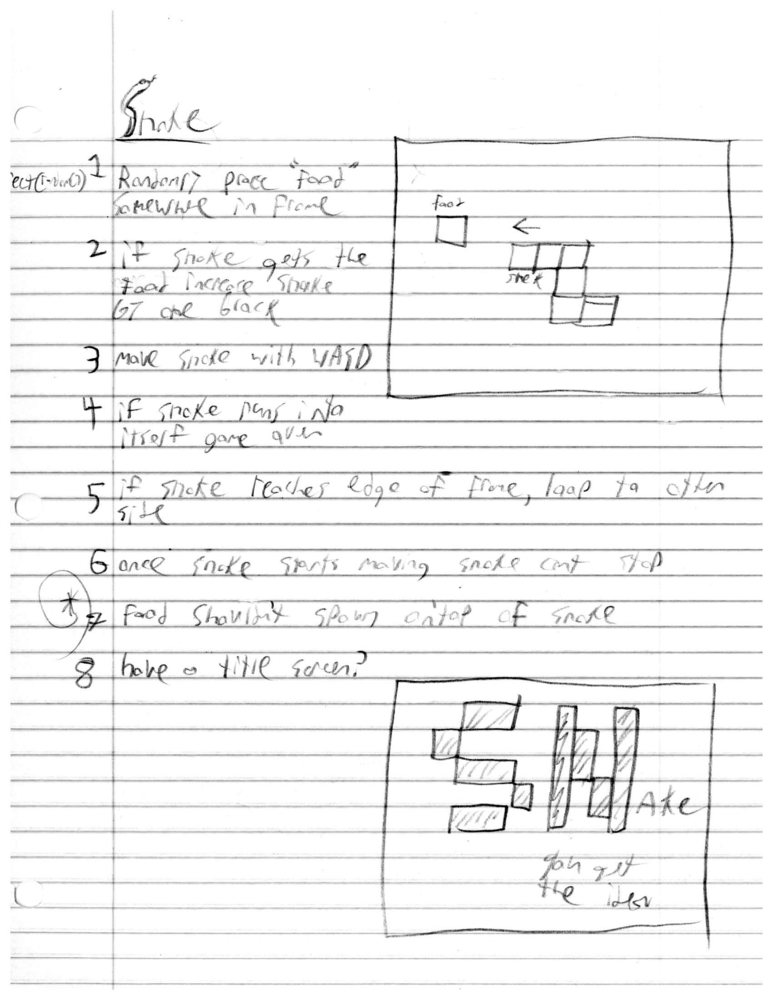 Snake
1 Randomly place "food"
somewhere in frame
2 if snake gets the
food increase snake
by one block
3 move snake with WASD
4 if snake runs into
itself game over
5 if snake reaches edge of frame, loop to other
side
6 once snake starts moving snake cant stop
* 7 food shouldn't spawn ontop of snake
8 have a title screen?
food
←
snek
SN
AKe
you get
the idea